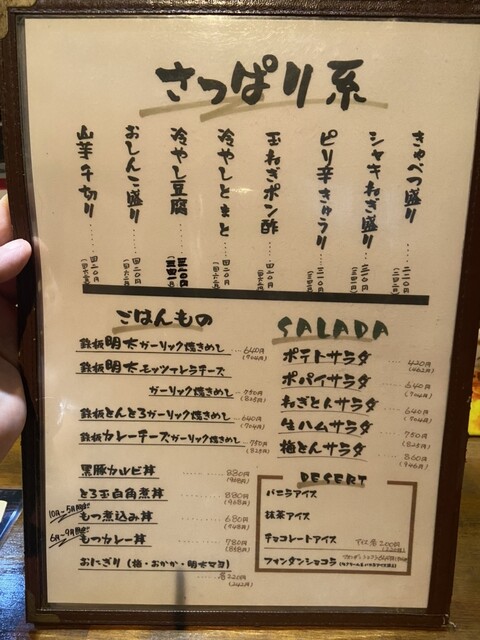 さっぱり系
きゃべつ盛り
シャキねぎ盛り
ピリ辛きゅうり
玉ねぎポン酢
冷やしとまと
冷やし豆腐
おしんこ盛り
山芋千切り
ごはんもの
鉄板明太ガーリック焼きめし 640円
(704円)
鉄板明太モッツァレラチーズ
ガーリック焼きめし 750円
(825円)
鉄板とんとろガーリック焼きめし 640円
(704円)
鉄板カレーチーズガーリック焼きめし 750円
(825円)
黒豚カルビ丼 880円
(968円)
とろ玉白角煮丼 880円
(968円)
10月~5月限定 もつ煮込み丼 680円
(748円)
6月~9月限定 もつカレー丼 780円
(858円)
おにぎり(梅・おかか・明太マヨ)
各220円
(242円)
SALADA
ポテトサラダ 420円
(462円)
ポパイサラダ 640円
(704円)
ねぎとんサラダ 640円
(704円)
生ハムサラダ 750円
(825円)
梅とんサラダ 860円
(946円)
DESERT
バニラアイス
抹茶アイス
チョコレートアイス
アイス各200円
(220円)
フォンダンショコラ